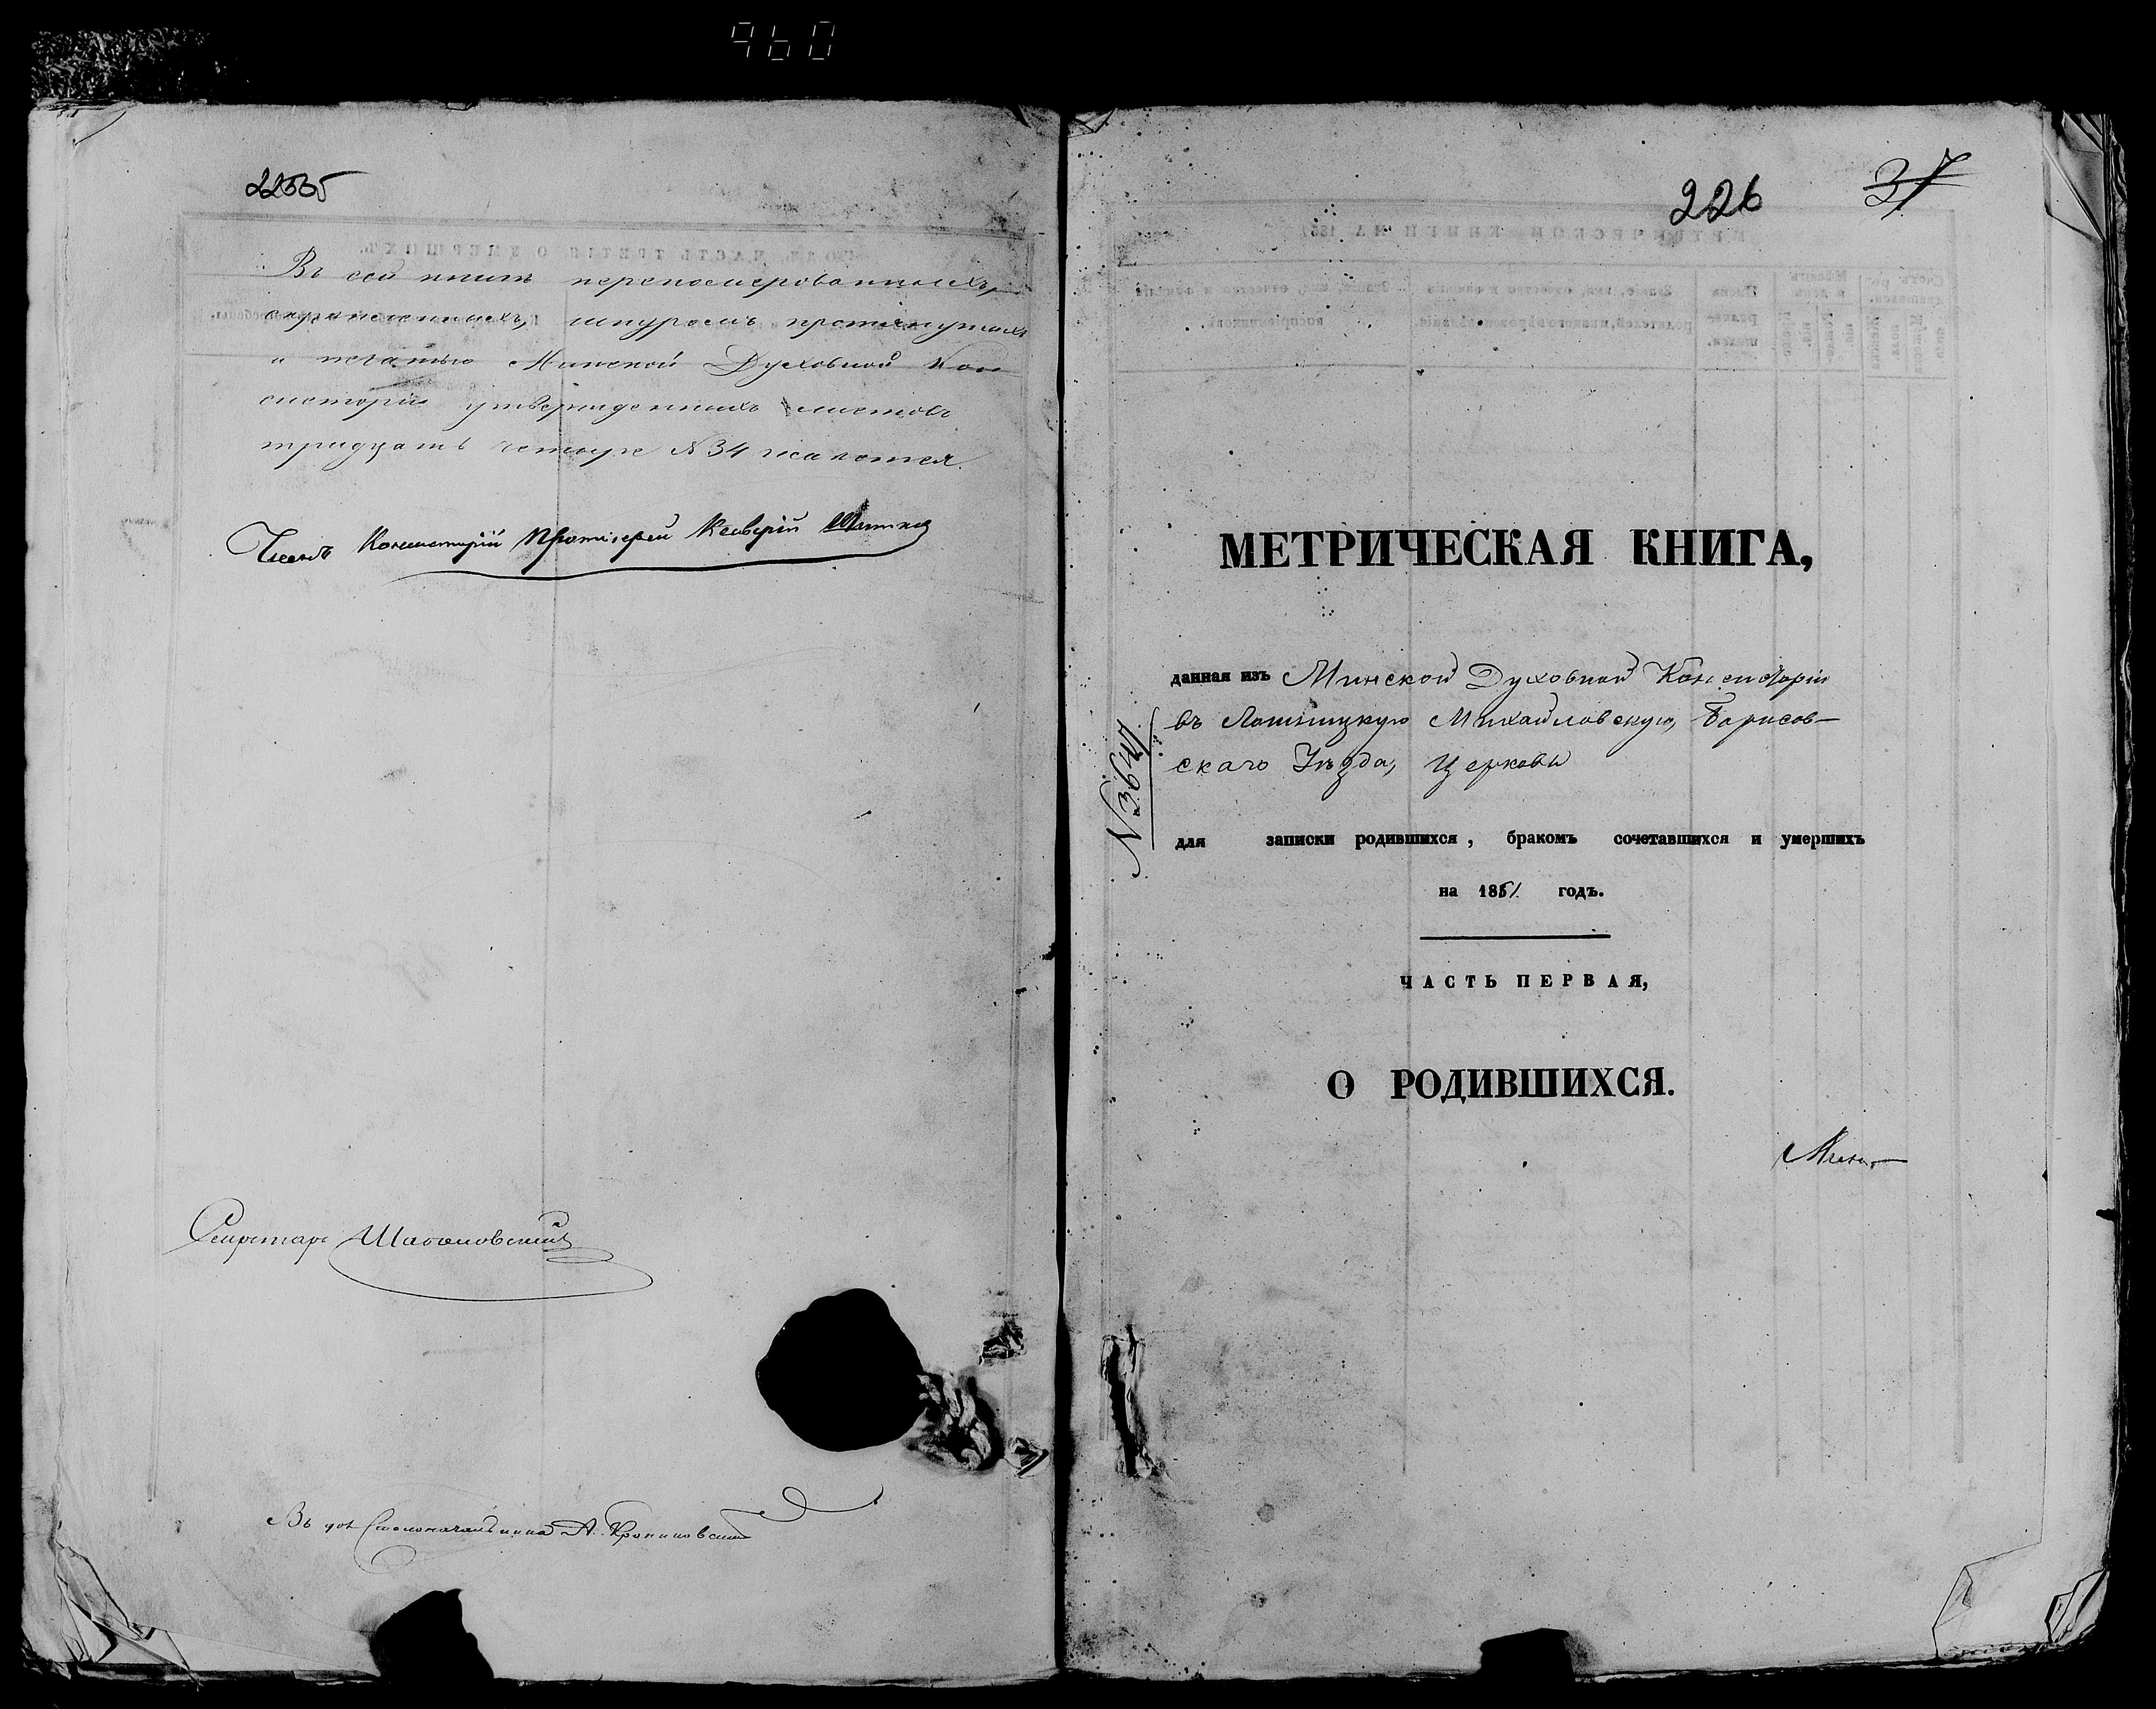 960
225 об
Въ сей книгѣ перенумерованныхъ,
скрѣпленныхъ, шнуромъ протянутыхъ
и печатью Минской Духовной Кон
систоріи утвержденныхъ листовъ
тридцать четыре N 34 числится.
Членъ Консисторіи Протоіерей
Секретарь
Въ дол Столоначальника А.
226 37
МЕТРИЧЕСКАЯ КНИГА,
данная изъ Минской Духовной Консисторіи
въ Лошницкую Михайловскую, Борисов-
скаго Уѣзда, Церковь
N 3641
для записки родившихся, бракомъ сочетавшихся и умершихъ
на 1851 годъ.
ЧАСТЬ ПЕРВАЯ,
О РОДИВШИХСЯ.